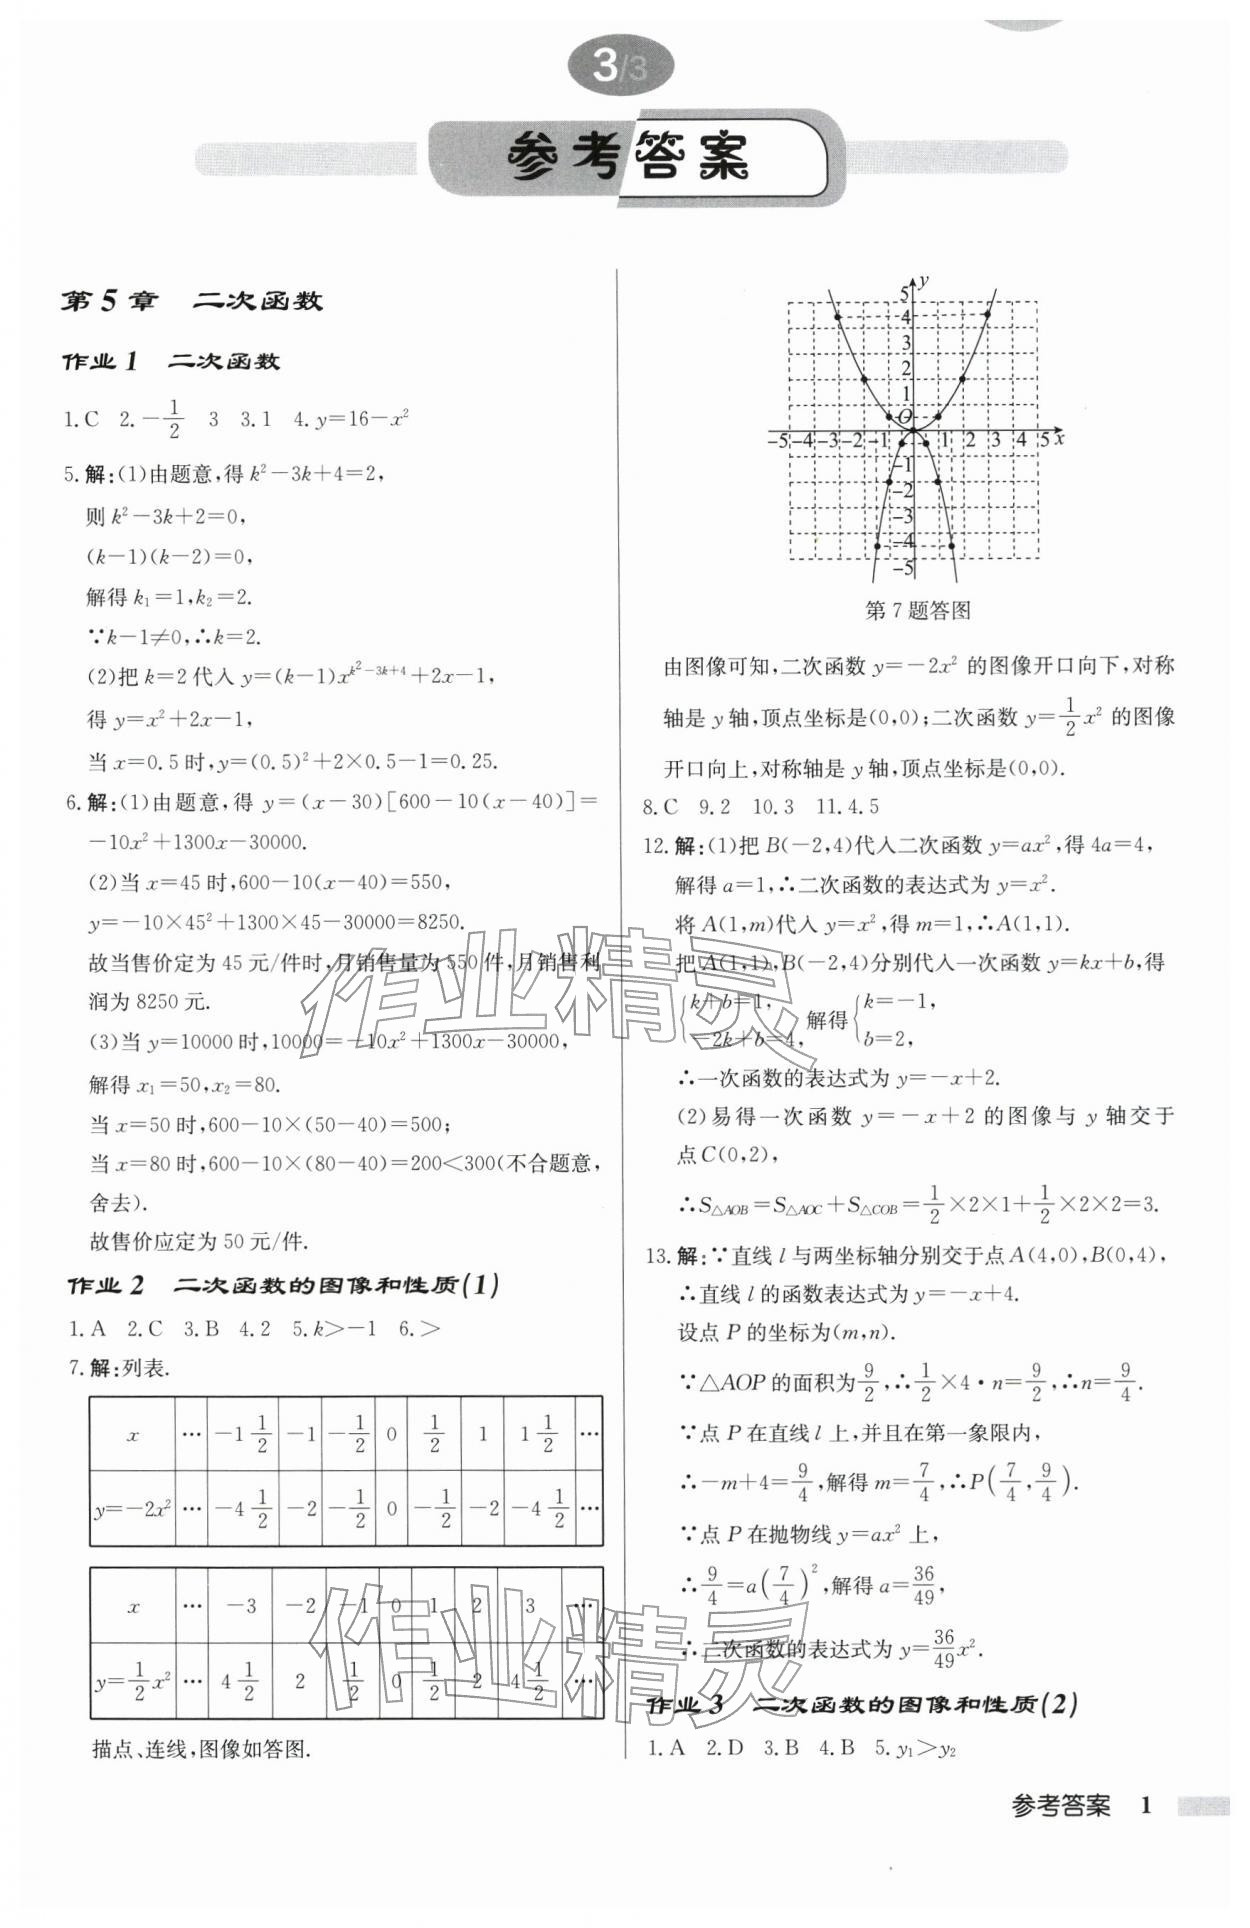 3/3
参考答案
第5章 二次函数
作业1 二次函数
1.C 2.-1/2 3 3.1 4.y=16-x²
5.解:(1)由题意,得k²-3k+4=2,
则k²-3k+2=0,
(k-1)(k-2)=0,
解得k₁=1,k₂=2.
∵k-1≠0,∴k=2.
(2)把k=2代入y=(k-1)x^(k²-3k+4)+2x-1,
得y=x²+2x-1,
当x=0.5时,y=(0.5)²+2×0.5-1=0.25.
6.解:(1)由题意,得y=(x-30)[600-10(x-40)]=
-10x²+1300x-30000.
(2)当x=45时,600-10(x-40)=550,
y=-10×45²+1300×45-30000=8250.
故当售价定为45元/件时,月销售量为550件,月销售利
润为8250元.
(3)当y=10000时,10000=-10x²+1300x-30000,
解得x₁=50,x₂=80.
当x=50时,600-10×(50-40)=500;
当x=80时,600-10×(80-40)=200<300(不合题意,
舍去).
故售价应定为50元/件.
作业2 二次函数的图像和性质(1)
1.A 2.C 3.B 4.2 5.k>-1 6.>
7.解:列表.
x … -1 1/2 -1 -1/2 0 1/2 1 1 1/2 …
y=-2x² … -4 1/2 -2 -1/2 0 -1/2 -2 -4 1/2 …
x … -3 -2 -1 0 1 2 3 …
y=1/2x² … 4 1/2 2 1/2 0 1/2 2 4 1/2 …
描点、连线,图像如答图.
y
5
4
3
2
1
O
-5 -4 -3 -2 -1 1 2 3 4 5 x
-1
-2
-3
-4
-5
第7题答图
由图像可知,二次函数y=-2x²的图像开口向下,对称
轴是y轴,顶点坐标是(0,0);二次函数y=1/2x²的图像
开口向上,对称轴是y轴,顶点坐标是(0,0).
8.C 9.2 10.3 11.4.5
12.解:(1)把B(-2,4)代入二次函数y=ax²,得4a=4,
解得a=1,∴二次函数的表达式为y=x².
将A(1,m)代入y=x²,得m=1,∴A(1,1).
把A(1,1),B(-2,4)分别代入一次函数y=kx+b,得
{k+b=1, -2k+b=4, 解得{k=-1, b=2,
∴一次函数的表达式为y=-x+2.
(2)易得一次函数y=-x+2的图像与y轴交于
点C(0,2),
∴S△AOB=S△AOC+S△COB=1/2×2×1+1/2×2×2=3.
13.解:∵直线l与两坐标轴分别交于点A(4,0),B(0,4),
∴直线l的函数表达式为y=-x+4.
设点P的坐标为(m,n).
∵△AOP的面积为9/2,∴1/2×4·n=9/2,∴n=9/4.
∵点P在直线l上,并且在第一象限内,
∴-m+4=9/4,解得m=7/4,∴P(7/4,9/4).
∵点P在抛物线y=ax²上,
∴9/4=a(7/4)²,解得a=36/49,
∴二次函数的表达式为y=36/49x².
作业3 二次函数的图像和性质(2)
1.A 2.D 3.B 4.B 5.y₁>y₂
参考答案 1
作业精灵
作业精灵